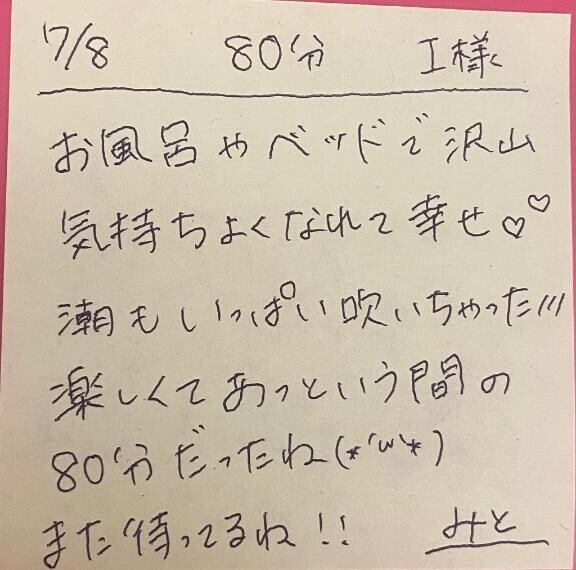 7/8 80分 I様
お風呂やベッドで沢山
気持ちよくなれて幸せ♡♡
潮もいっぱい吹いちゃった///
楽しくてあっという間の
80分だったね(*'ω'*)
また待ってるね!! みと